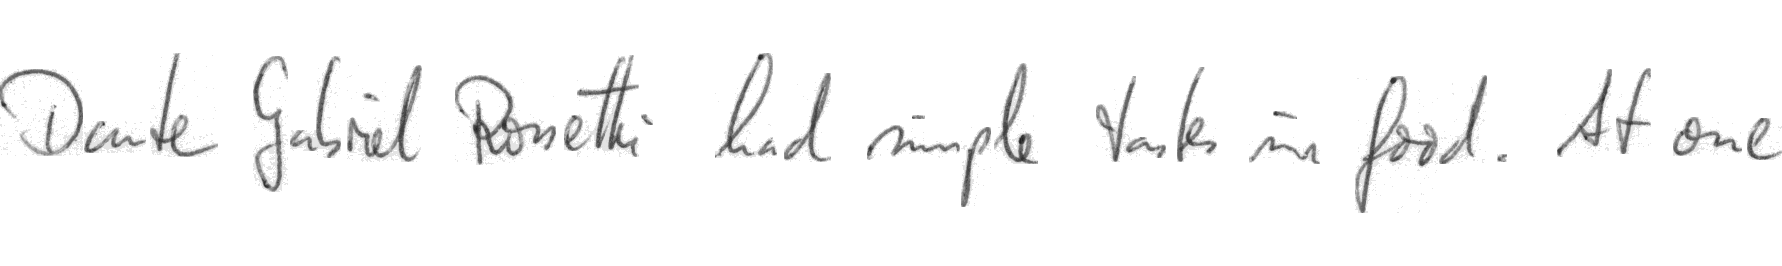 Dante Gabriel Rossetti had simple tastes in food. At one